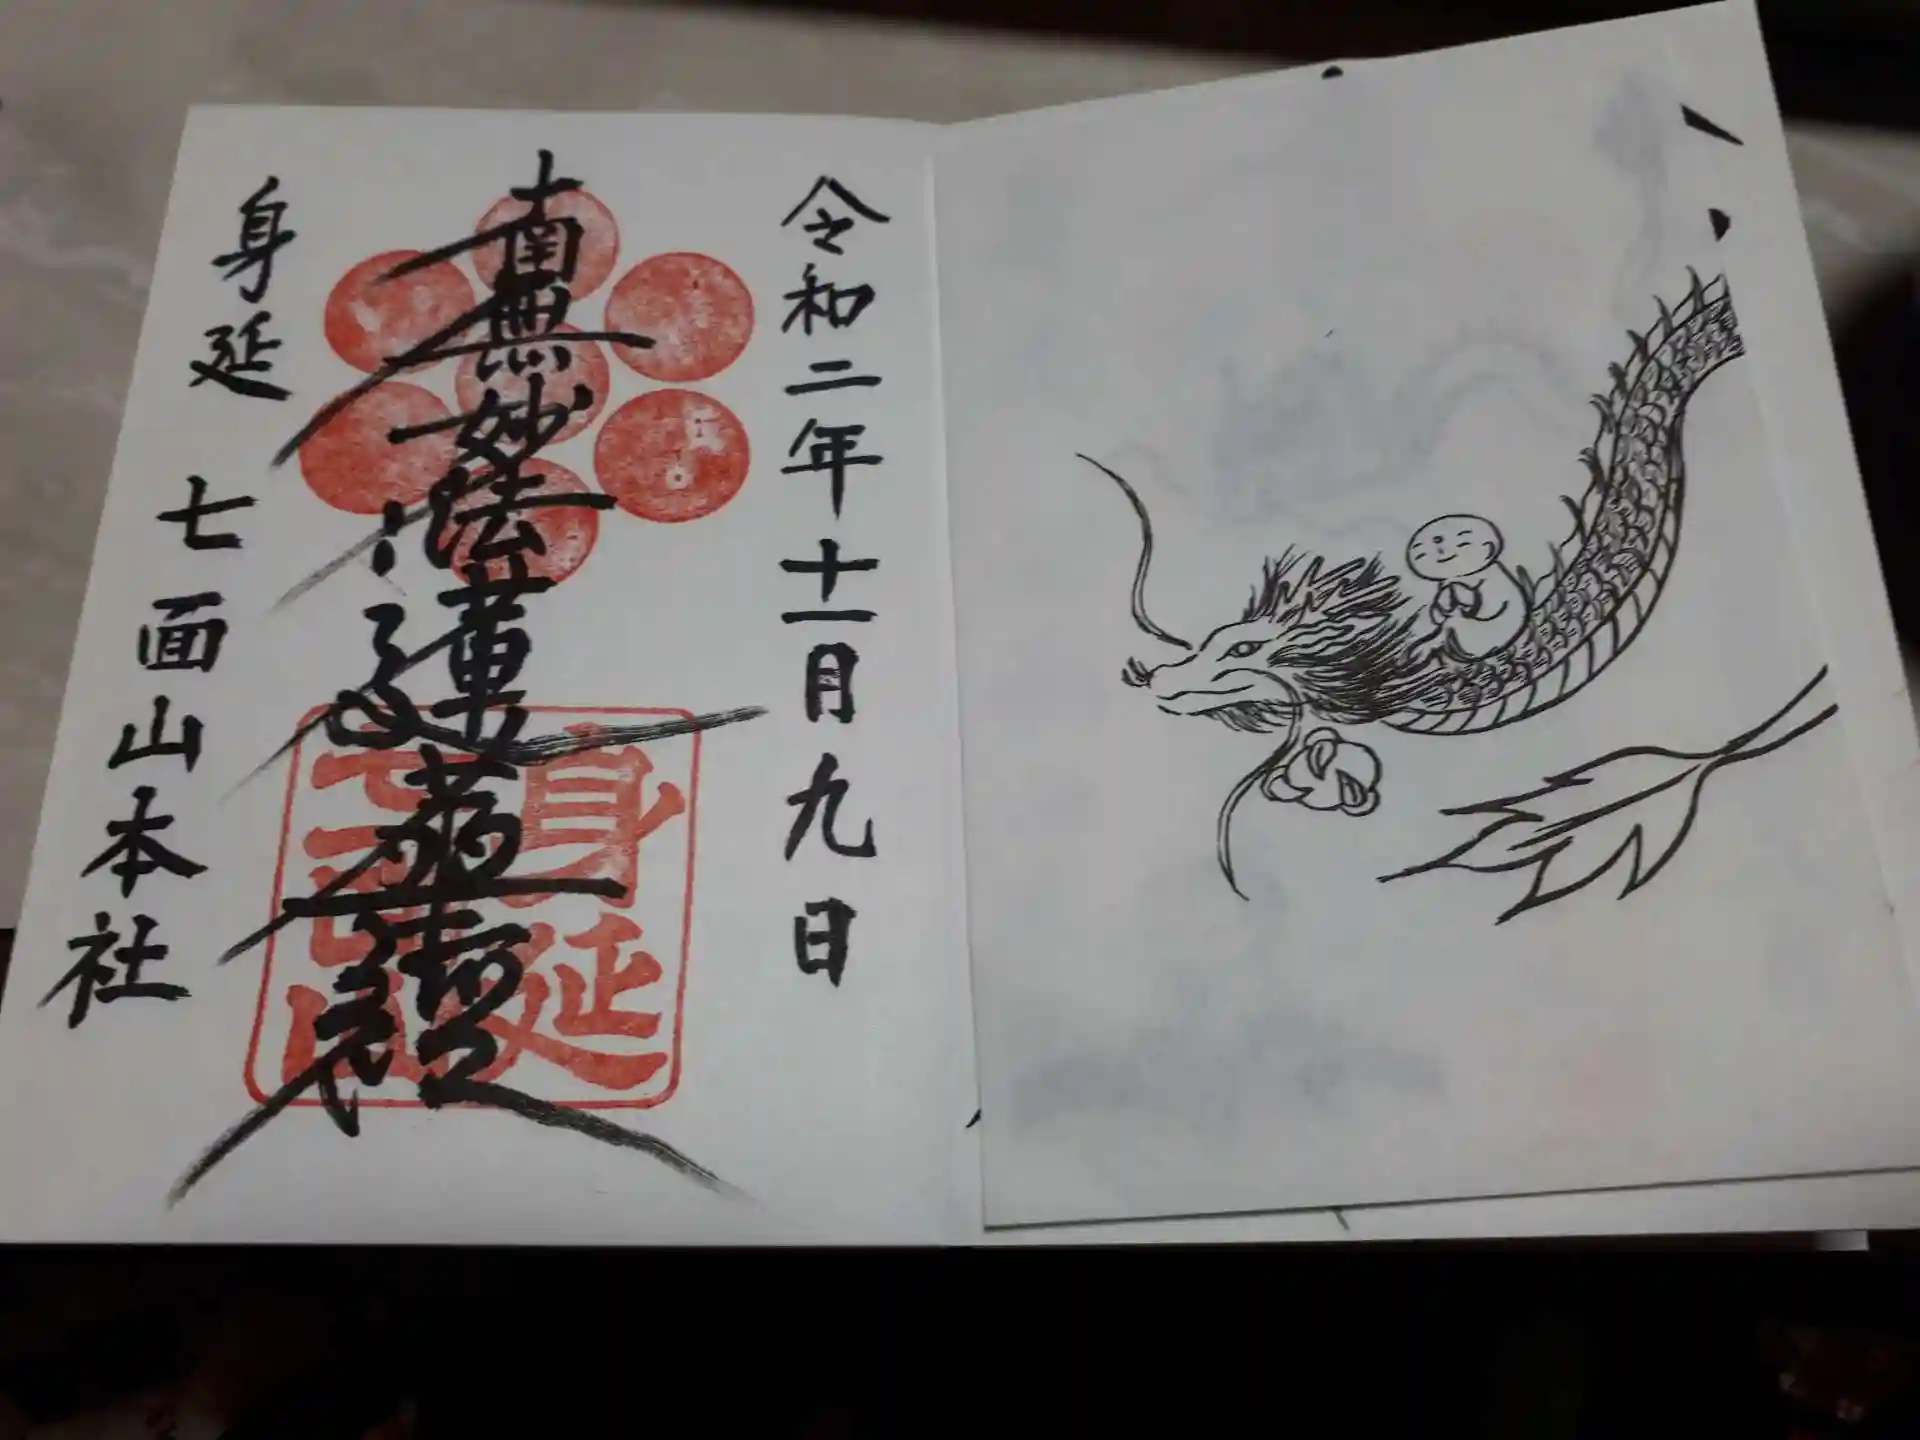 令和二年十一月九日
南無妙法蓮華経
身延
七面山
身延 七面山本社